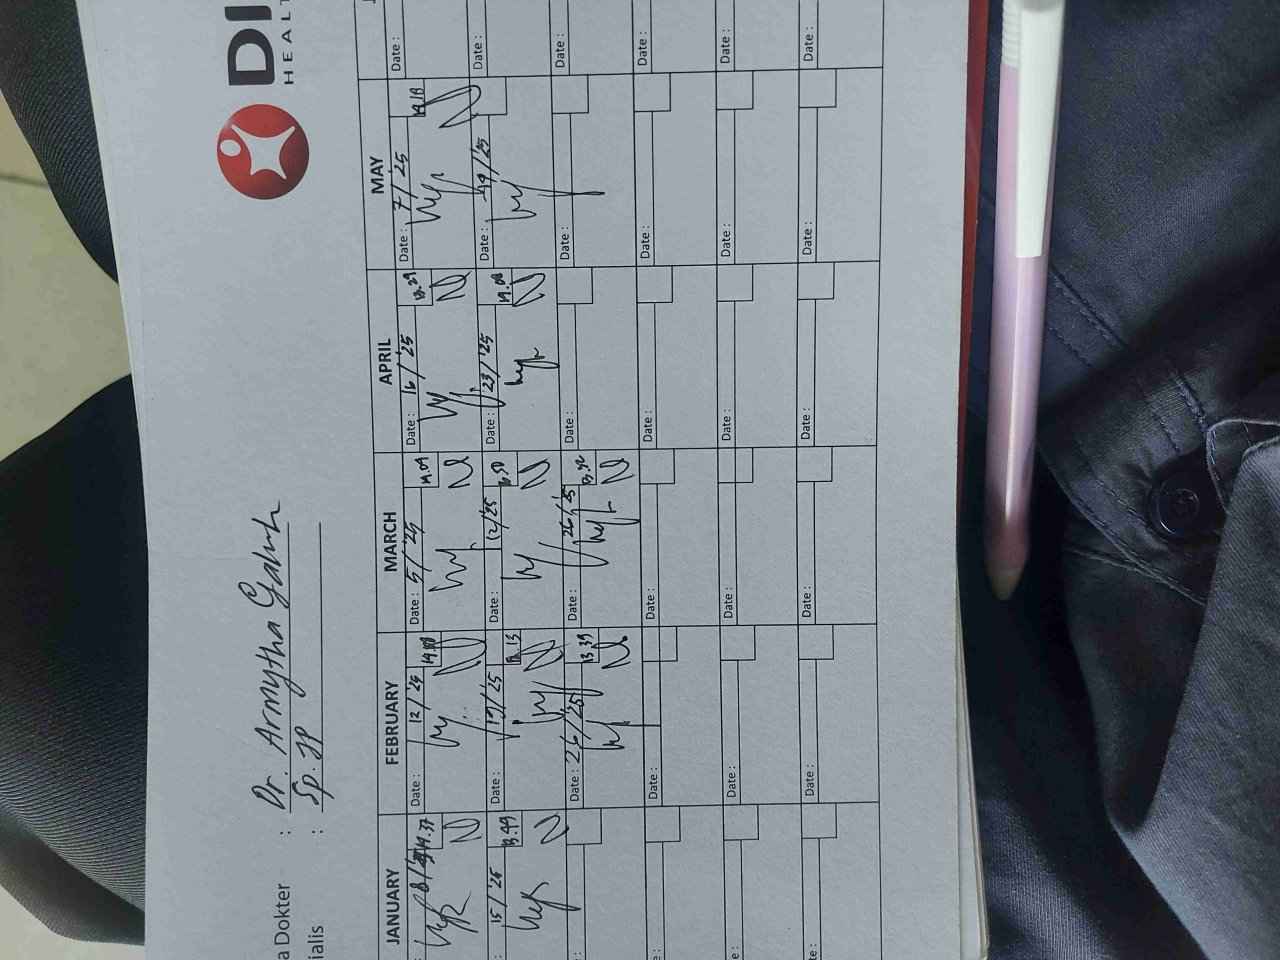 DI
HEALT
a Dokter : Dr. Armytha
ialis : Sp. JP
JANUARY FEBRUARY MARCH APRIL MAY
8/ 14.37 Date : 12/25 14.00 Date : 5/25 14.09 Date : 16/25 13.29 Date : 7/25 14.18 Date :
: 15/25 13.49 Date : 19/25 Date : 12/25 Date : 23/25 14.08 Date : 14/25 Date :
Date : 26/25 13.39 Date : 26/25 13.42 Date : Date : Date :
e : Date : Date : Date : Date : Date :
e : Date : Date : Date : Date : Date :
te : Date : Date : Date : Date : Date :